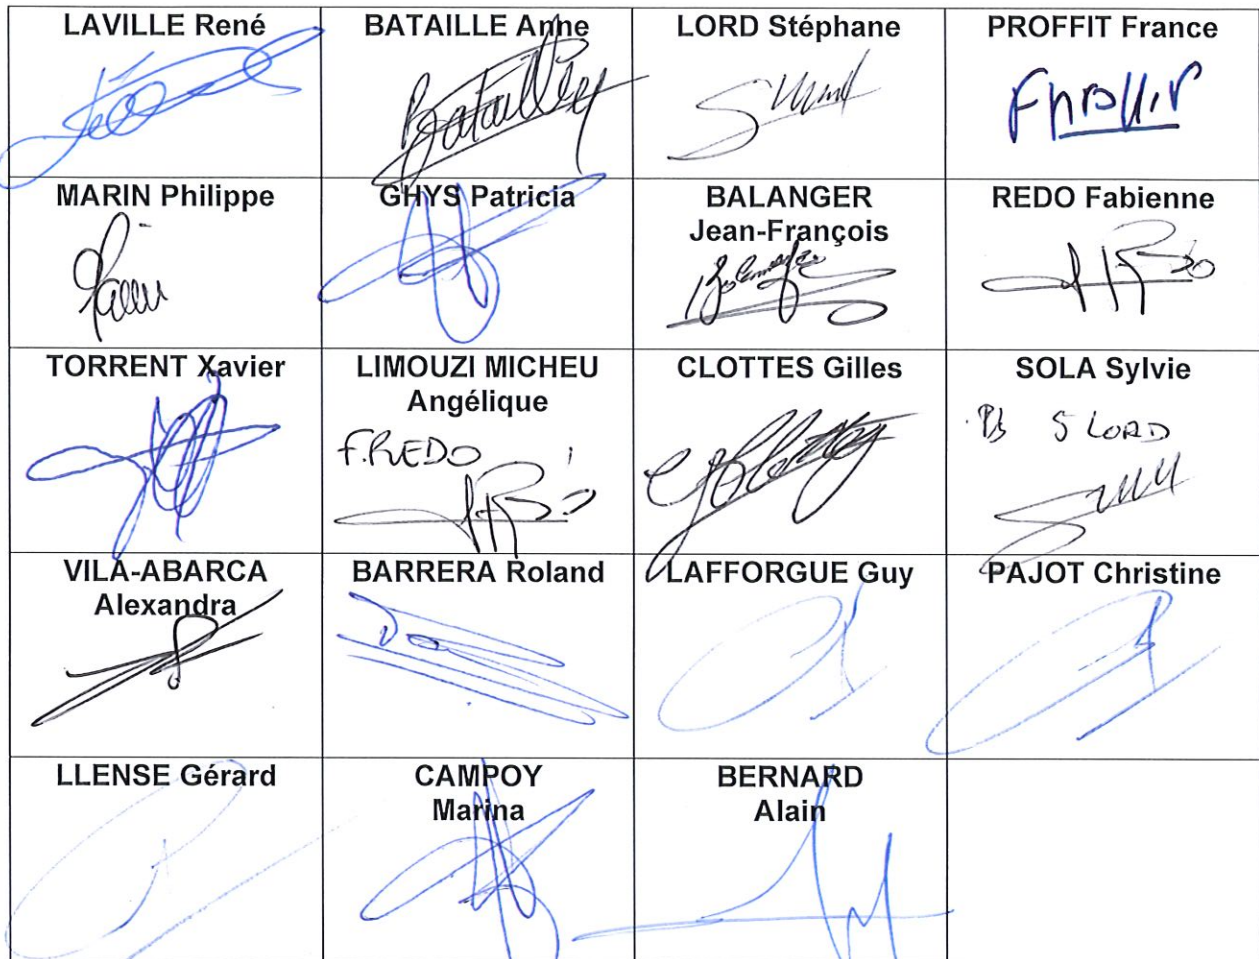 LAVILLE René
BATAILLE Anne
LORD Stéphane
PROFFIT France
Bataille
MARIN Philippe
GHYS Patricia
BALANGER
Jean-François
REDO Fabienne
TORRENT Xavier
LIMOUZI MICHEU
Angélique
CLOTTES Gilles
SOLA Sylvie
F.REDO
S LORD
VILA-ABARCA
Alexandra
BARRERA Roland
LAFFORGUE Guy
PAJOT Christine
LLENSE Gérard
CAMPOY
Marina
BERNARD
Alain